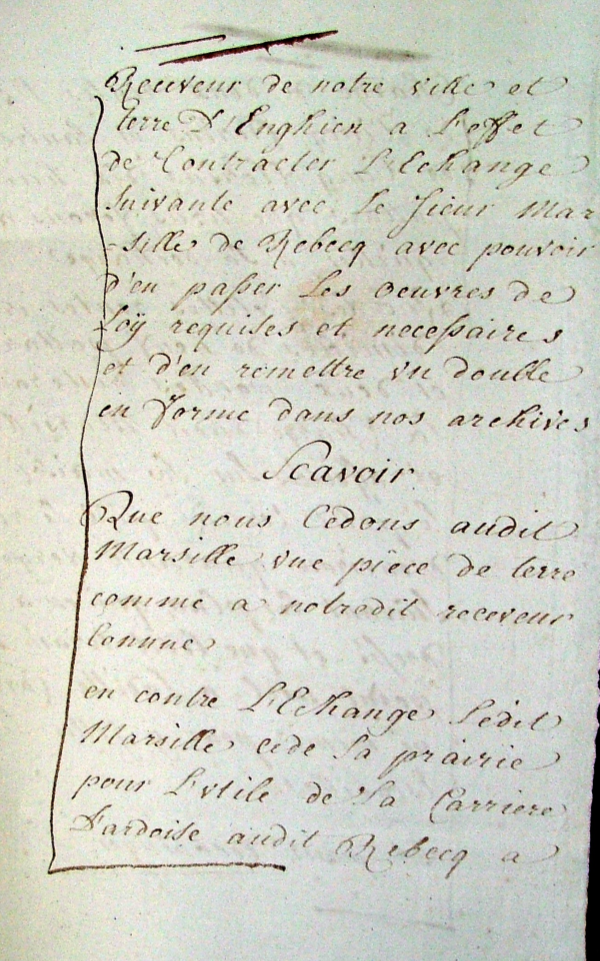 Receveur de notre ville et
terre D'Enghien a L'effet
de Contracter L'Echange
suivante avec Le Sieur Mar
-sille de Rebecq avec pouvoir
d'en passer Les oeuvres de
Loÿ requises et necessaires
et d'en remettre vn double
en forme dans nos archives
Scavoir
Que nous Cédons audit
Marsille vne piece de terre
comme a notredit receveur
Connue
en contre L'Echange Ledit
Marsille cede Sa prairie
pour L'vtile de La Carriere
D'ardoise audit Rebecq a